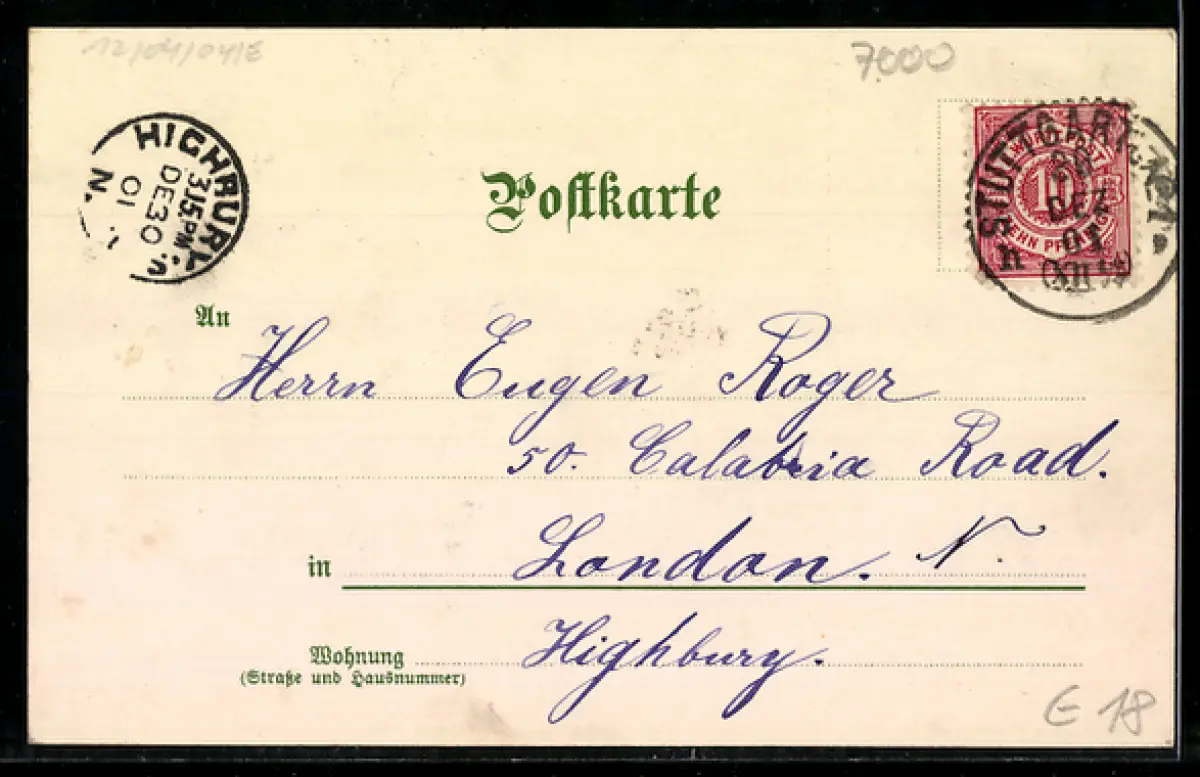 12/04/04/E
7000
HIGHBURY. S.
3.15.PM
DE 30
01
N.
Postkarte
STUTTGART
DEZ
01
h
WÜRTT. POST
10
ZEHN PFENNIG
An
Herrn Eugen Roger
50. Calabria Road.
in London. N.
Highbury.
Wohnung
(Straße und Hausnummer)
E 18